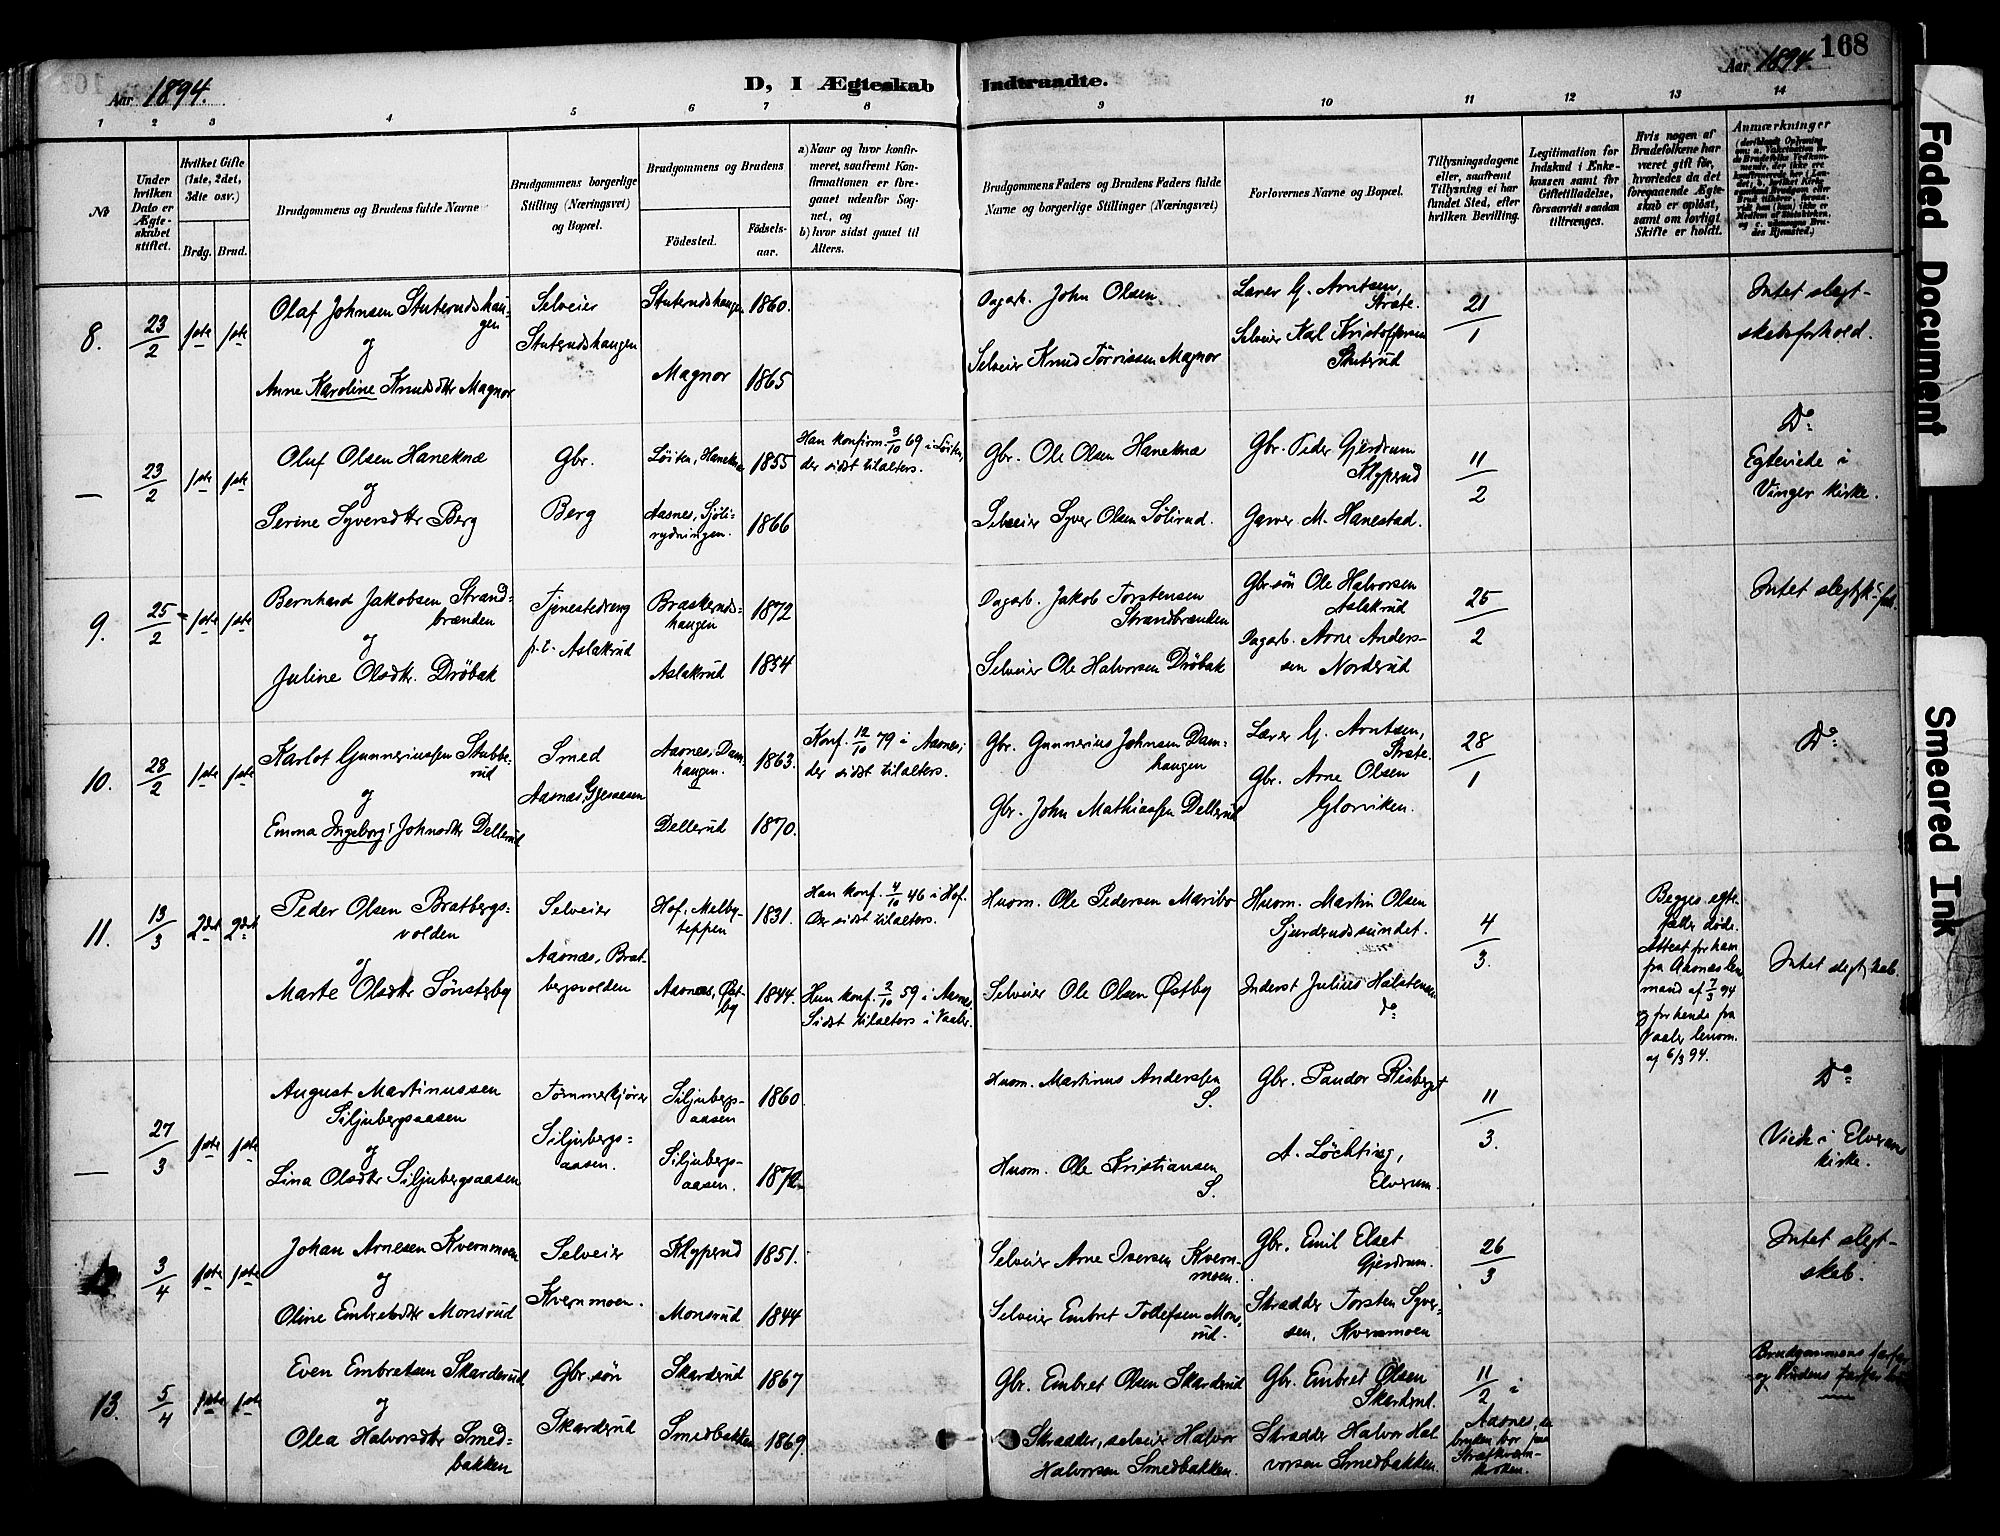 168
Aar 1894.
D, I Ægteskab Indtraadte.
Aar 1894.
1 2 3 4 5 6 7 8 9 10 11 12 13 14
№
Under hvilken Dato er Ægteskabet stiftet.
Hvilket Gifte (1ste, 2det, 3die osv.)
Brdg. Brud.
Brudgommens og Brudens fulde Navne
Brudgommens borgerlige Stilling (Næringsvei) og Bopæl.
Brudgommens og Brudens
Födested.
Födselsaar.
a) Naar og hvor konfirmeret, saafremt Konfirmationen er foregaaet udenfor Sognet, og
b) hvor sidst gaaet til Alters.
Brudgommens Faders og Brudens Faders fulde Navne og borgerlige Stillinger (Næringsvei)
Forlovernes Navne og Bopæl.
Tillysningsdagene eller, saafremt Tillysning ei har fundet Sted, efter hvilken Bevilling.
Legitimation for Indskud i Enkekassen samt for Giftetilladelse, forsaavidt saadan tiltrænges.
Hvis nogen af Brudefolkene har været gift før, hvorledes da det foregaaende Ægteskab er oplöst, samt om lovligt Skifte er holdt.
Anmærkninger
8.
23/2
1ste 1ste
Olaf Johnsen Stuterudshaugen
og
Anne Karoline Knudsdtr Magnor
Selveier
Stuterudshaugen
Stuterudshaugen 1860.
Magnor 1865
Dagarb. John Olsen
Selveier Knud Törrissen Magnor
Lærer G. Arntsen, Strate.
Selveier Karl Kristoffersen Stuterud
21/1
Intet slegtskabsforhold.
—
23/2
1ste 1ste
Oluf Olsen Haneknæ
og
Serine Syversdtr Berg
Gbr.
Berg
Löiten, Haneknæ 1855
Aasnes, Sjölirydningen. 1866
Han konfirm. 3/10 69 i Löiten, der sidst tilalters.
Gbr. Ole Olsen Haneknæ
Selveier Syver Olsen Sölirud.
Gbr. Peder Gjerdrum Klyperud
Garver M. Hanestad.
11/2
Do
Egteviede i Vinger kirke.
9.
25/2
1ste 1ste
Bernhard Jakobsen Strandbrænden
og
Juline Olsdtr. Dröbak
Tjenestedreng
p.t. Aslakrud
Braskerudshaugen 1872
Aslakrud 1854
Dagarb. Jakob Torstensen Strandbrænden
Selveier Ole Halvorsen Dröbak
Gbr.sön Ole Halvorsen Aslakrud
Dagarb. Arne Anderssen Norderud
25/2
10.
28/2
1ste 1ste
Karlot Gunneriussen Stubberud
og
Emma Ingeborg Johnsdtr Dellerud
Smed
Aasnæs, Gjesaasen
Aasnes, Damhaugen. 1863.
Dellerud 1870.
Konf. 12/10 79 i Aasnes, der sidst tilalters.
Gbr. Gunnerius Johnsen Damhaugen
Gbr. John Mathiassen Dellerud
Lærer G. Arntsen, Strate.
Gbr. Arne Olsen Glorviken.
28/1
Do
11.
13/3
2det 2det
Peder Olsen Bratbergsvolden
og
Marte Olsdtr Sönsteby
Selveier
Aasnæs, Bratbergsvolden
Hof, Melbyteppen 1831.
Aasnæs, Østby 1844.
Han konf. 4/10 46 i Hof. Der sidst tilalters.
Hun konf. 2/10 59 i Aasnes, Sidst tilalters i Vaaler.
Husm. Ole Pedersen Maribo
Selveier Ole Olsen Østby
Husm. Martin Olsen Sjurderudssundet.
Inderst Julius Halstensen do
4/3.
Begges egtefæller døde. Attest for ham fra Aasnæs lensmand af 7/3 94 og for hende fra Vaaler lensm. af 6/3 94.
Intet slegtskab.
—
27/3
1ste 1ste
August Martinussen Siljubergsaasen
og
Lina Olsdtr Siljubergsaasen
Tömmerkjörer
Siljubergsaasen.
Siljubergsaasen 1860
Siljubergsaasen. 1872
Husm. Martinus Anderssen S.
Husm. Ole Kristiansen S.
Gbr. Pauder Risberget
A. Löchting, Elverum.
11/3.
Do
Viede i Elverum kirke.
3/4
1ste 1ste
Johan Arnesen Kvernmoen
og
Oline Embretsdtr Monsrud
Selveier
Kvernmoen.
Klyperud 1851.
Monsrud 1844
Selveier Arne Iversen Kvernmoen.
Selveier Embret Tollefsen Monsrud.
Gbr. Emil Elset Gjerdrum.
Skrædder Torsten Syversen, Kvernmoen
26/3
Intet slegtskab.
13.
5/4
1ste 1ste
Even Embretsen Skarderud
og
Olea Halvorsdtr Smedbakken
Gbr. sön
Skarderud
Skarderud 1867
Smedbakken 1869.
Gbr. Embret Olsen Skarderud
Skrædder, selveier Halvor Halvorsen Smedbakken.
Gbr. Embret Olsen Skarderud.
Skrædder Halvor Halvorsen Smedbakken.
11/2 i Aasnes,
Brudgommens farfar og Brudens farfar
Faded Document
Smeared Ink